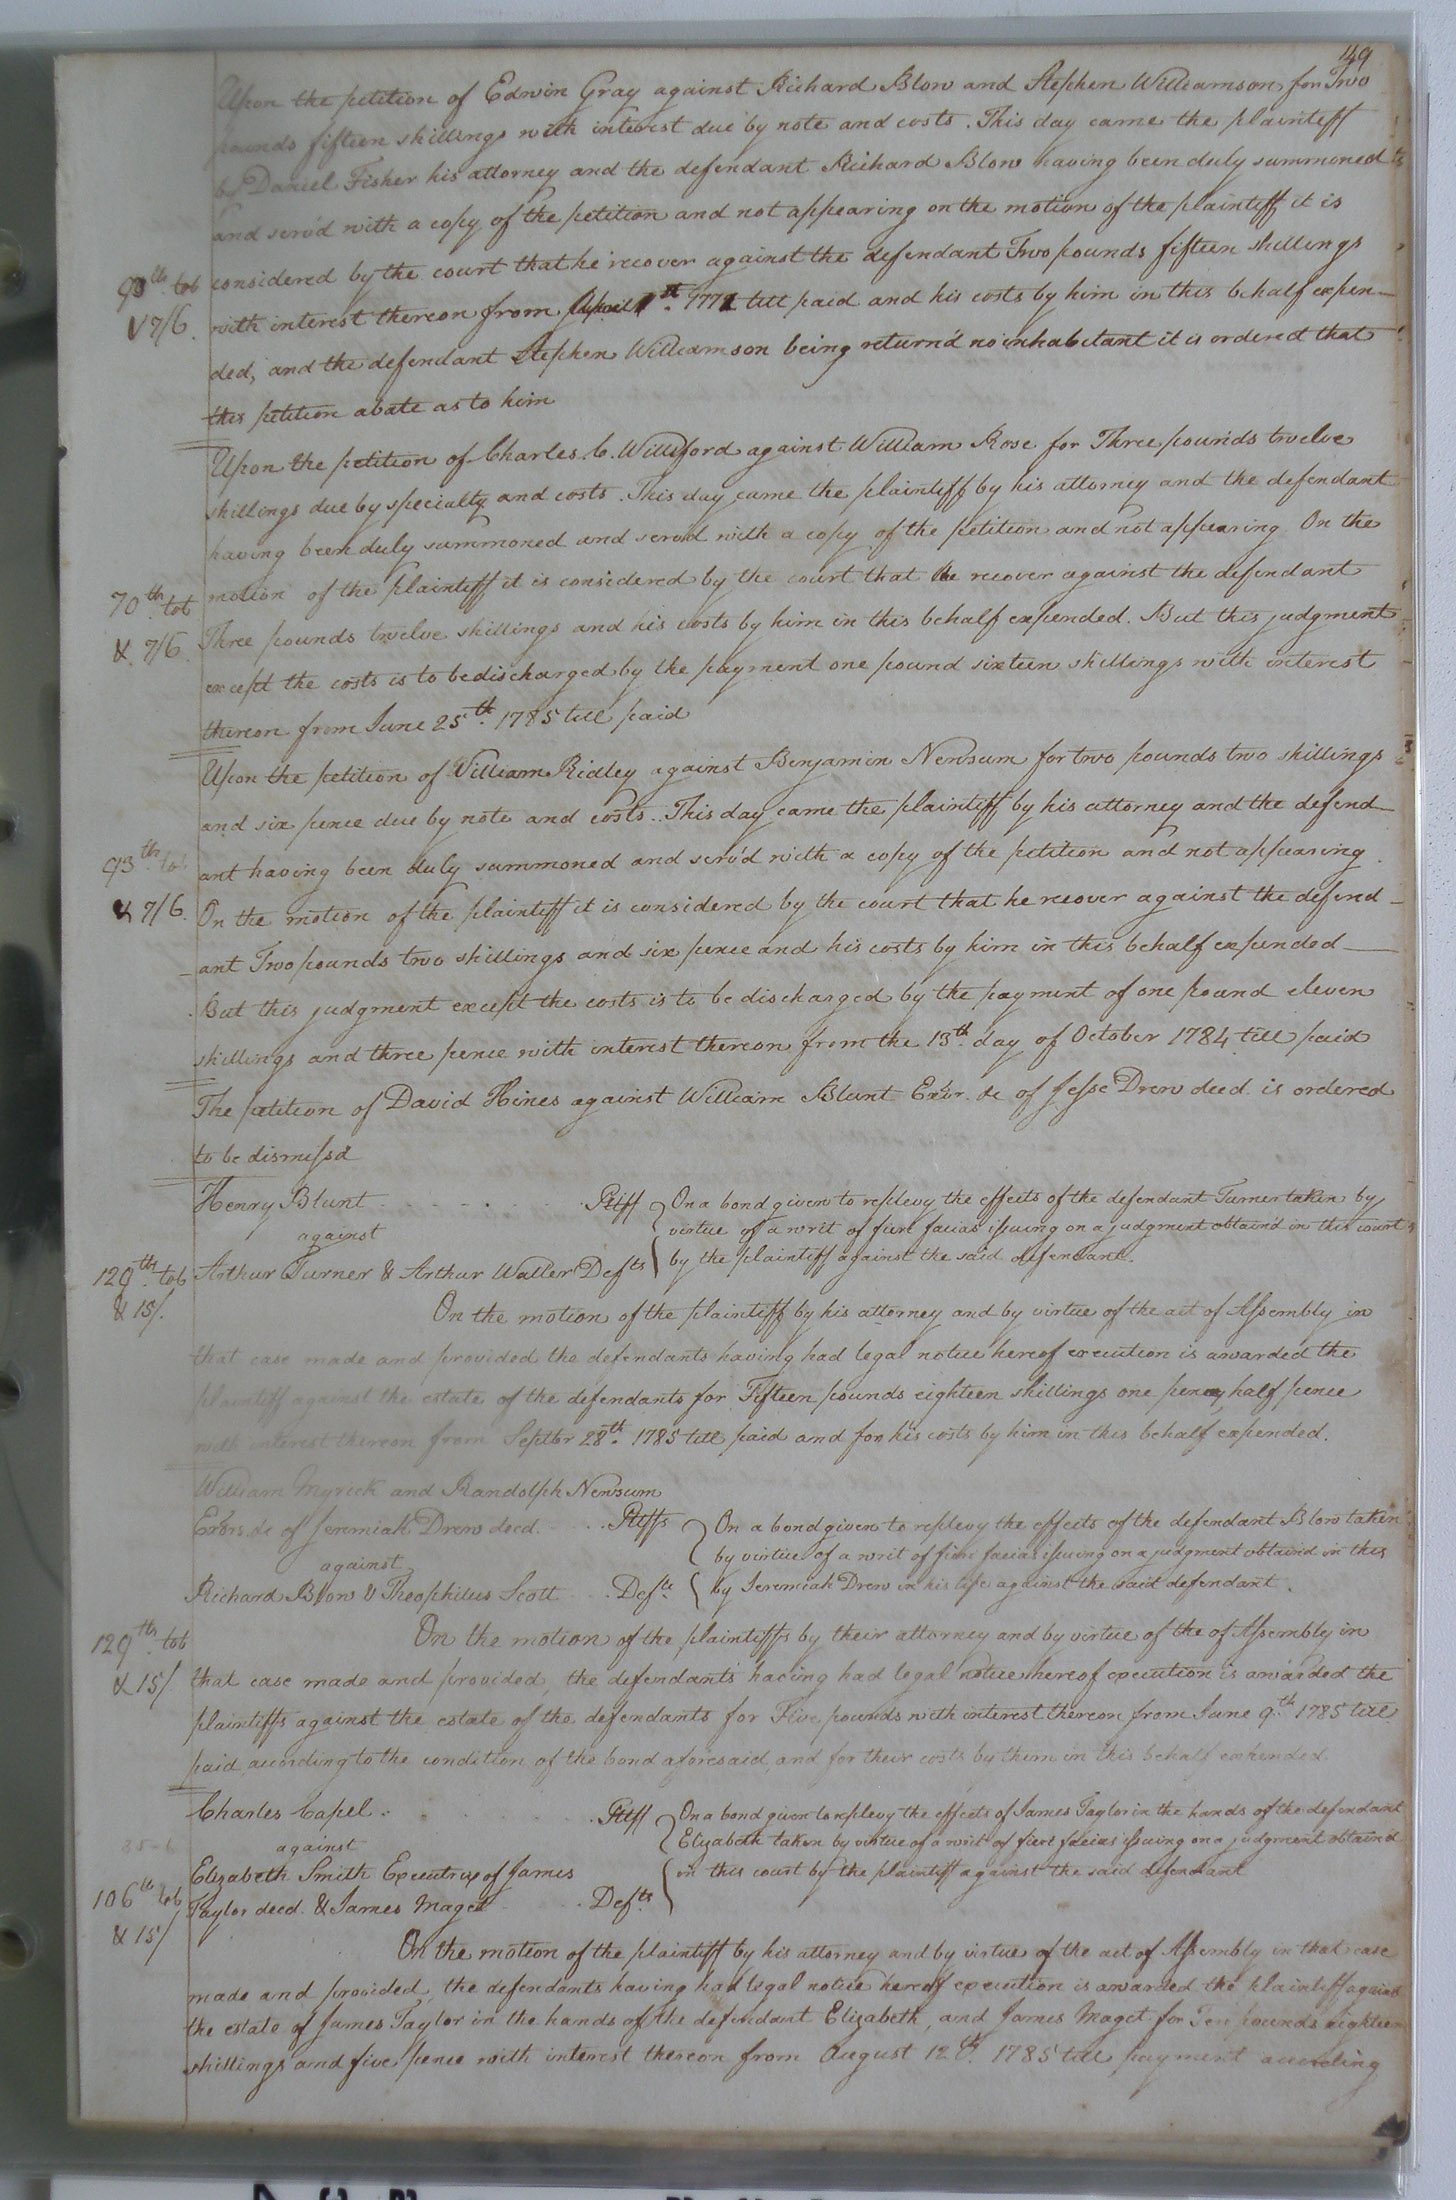 49
Upon the petition of Edwin Gray against Richard Blow and Stephen Williamson for Two
pounds fifteen shillings with interest due by note and costs. This day came the plaintiff
by Daniel Fisher his attorney and the defendant Richard Blow having been duly summoned
and serv'd with a copy of the petition and not appearing on the motion of the plaintiff it is
considered by the court that he recover against the defendant Two pounds fifteen shillings
93 lb tob
with interest thereon from April 1st. 1772 till paid and his costs by him in this behalf expen-
& 7/6.
ded, and the defendant Stephen Williamson being return'd no inhabitant it is ordered that
this petition abate as to him
Upon the petition of Charles C. Williford against William Rose for Three pounds twelve
shillings due by specialty and costs. This day came the plaintiff by his attorney and the defendant
having been duly summoned and serv'd with a copy of the petition and not appearing. On the
motion of the plaintiff it is considered by the court that he recover against the defendant
70 th. tob
Three pounds twelve shillings and his costs by him in this behalf expended. But this judgment
& 7/6.
except the costs is to be discharged by the payment one pound sixteen shillings with interest
thereon from June 25th. 1785 till paid
Upon the petition of William Ridley against Benjamin Newsum for two pounds two shillings
and six pence due by note and costs. This day came the plaintiff by his attorney and the defend-
93 th. tob
ant having been duly summoned and serv'd with a copy of the petition and not appearing.
& 7/6.
On the motion of the plaintiff it is considered by the court that he recover against the defend-
ant Two pounds two shillings and six pence and his costs by him in this behalf expended
But this judgment except the costs is to be discharged by the payment of one pound eleven
shillings and three pence with interest thereon from the 13th. day of October 1784 till paid
The petition of David Hines against William Blunt Exōr. &c of Jesse Drew decd. is ordered
to be dismiss'd
Henry Blunt Pltff
against
Arthur Turner & Arthur Waller Defts
On a bond given to replevy the effects of the defendant Turner taken by
virtue of a writ of fieri facias issuing on a judgment obtain'd in this court
by the plaintiff against the said defendant.
129 th. tob
& 15/.
On the motion of the plaintiff by his attorney and by virtue of the act of Assembly in
that case made and provided the defendants having had legal notice hereof execution is awarded the
plaintiff against the estate of the defendants for Fifteen pounds eighteen shillings one penny half pence
with interest thereon from Septbr 28th. 1785 till paid and for his costs by him in this behalf expended.
William Myrick and Randolph Newsum
Exōrs. &c of Jeremiah Drew decd. Pltffs
against
Richard Blow & Theophilus Scott Defts.
On a bond given to replevy the effects of the defendant Blow taken
by virtue of a writ of fieri facias issuing on a judgment obtaind in this
by Jeremiah Drew in his life against the said defendant.
129 th. tob
& 15/
On the motion of the plaintiffs by their attorney and by virtue of the of Assembly in
that case made and provided, the defendants having had legal notice hereof execution is awarded the
plaintiffs against the estate of the defendants for Five pounds with interest thereon from June 9th 1785 till
paid according to the condition of the bond aforesaid, and for their costs by them in this behalf expended
Charles Capel Pltff
against
Elizabeth Smith Executrix of James
Taylor decd. & James Maget Defts.
On a bond given to replevy the effects of James Taylor in the hands of the defendant
Elizabeth taken by virtue of a writ of fieri facias issuing on a judgment obtain'd
in this court by the plaintiff against the said defendant
106 th tob
& 15/
On the motion of the plaintiff by his attorney and by virtue of the act of Assembly in that case
made and provided, the defendants having had legal notice hereof execution is awarded the plaintiff against
the estate of James Taylor in the hands of the defendant Elizabeth, and James Maget for Ten pounds eighteen
shillings and five pence with interest thereon from August 12th. 1785 till payment according